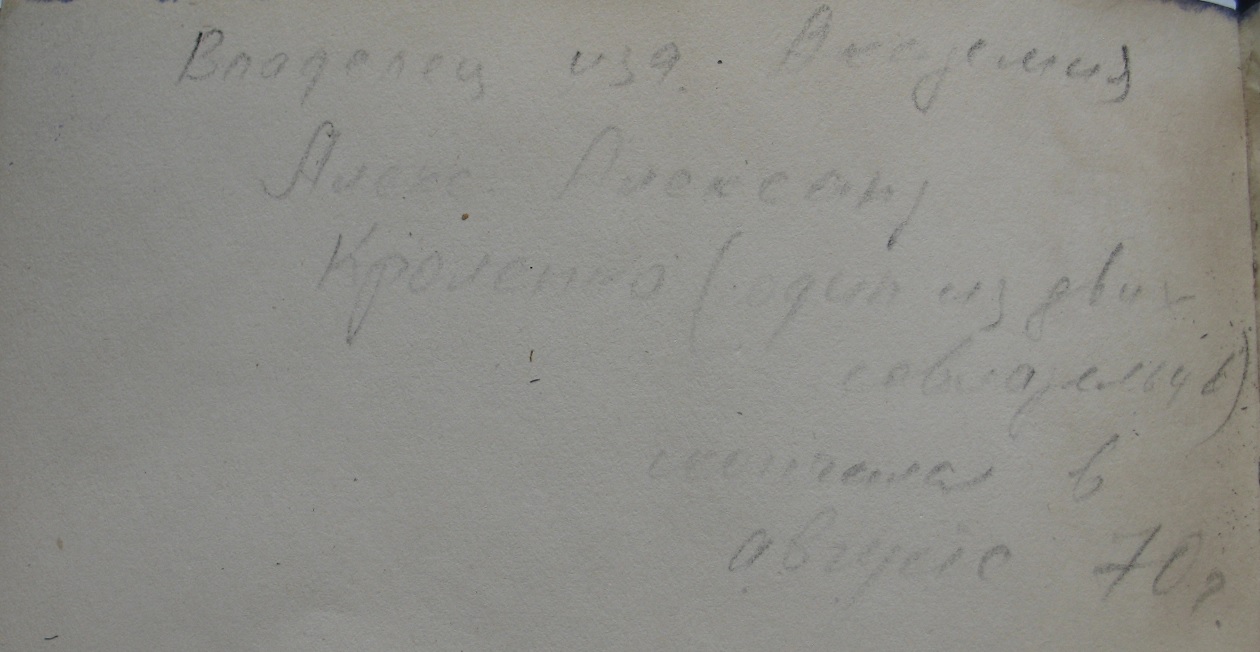 Владелец изд. Академия
Алекс. Алексан
Кроленко (один из двух
совладельцев)
скончался в
августе 70 г.